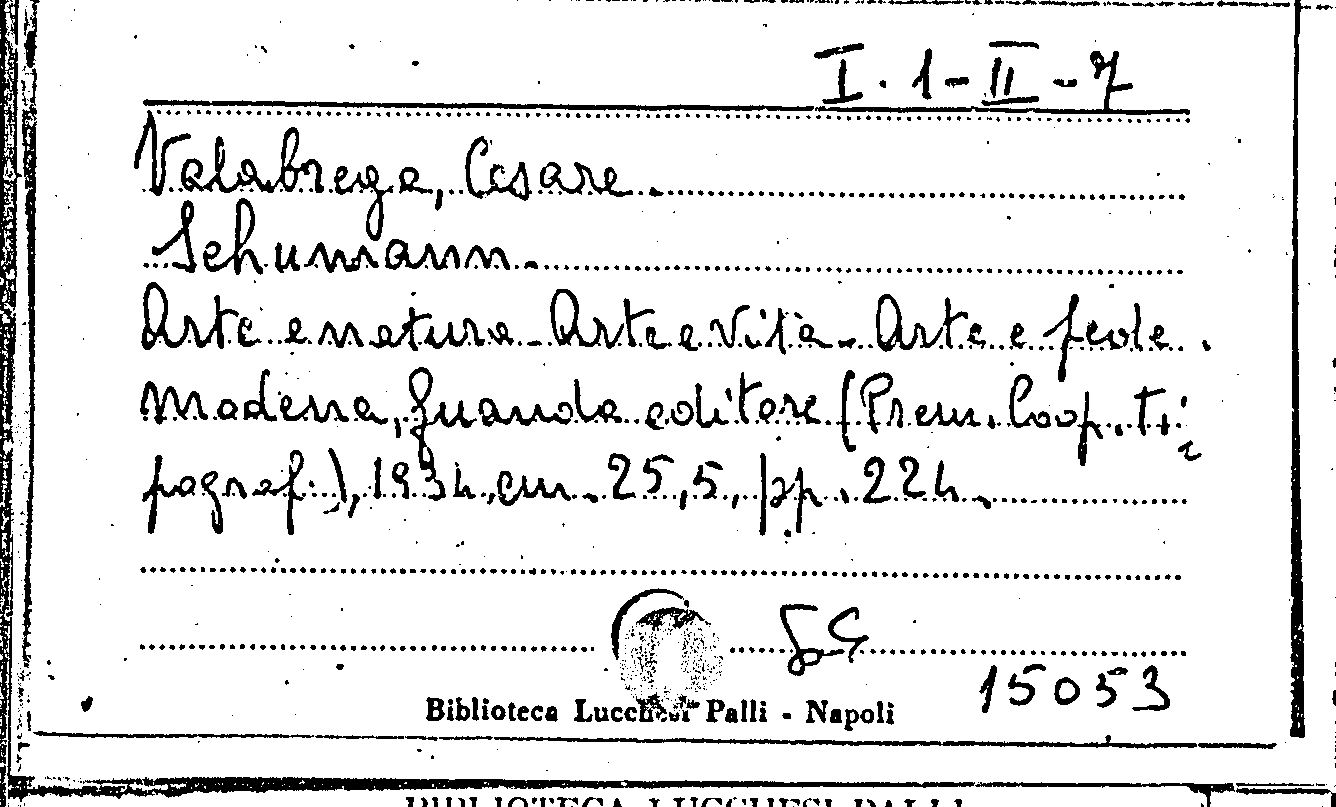 I. 1 - II - 7
Valabrega, Cesare.
Schumann.
Arte e natura - Arte e vita - Arte e fede.
Modena, Guanda editore (Prem. Coop. Ti=
pograf.), 1934, cm. 25,5, pp. 224.
15053
Biblioteca Lucchesi Palli - Napoli
BIBLIOTECA LUCCHESI PALLI